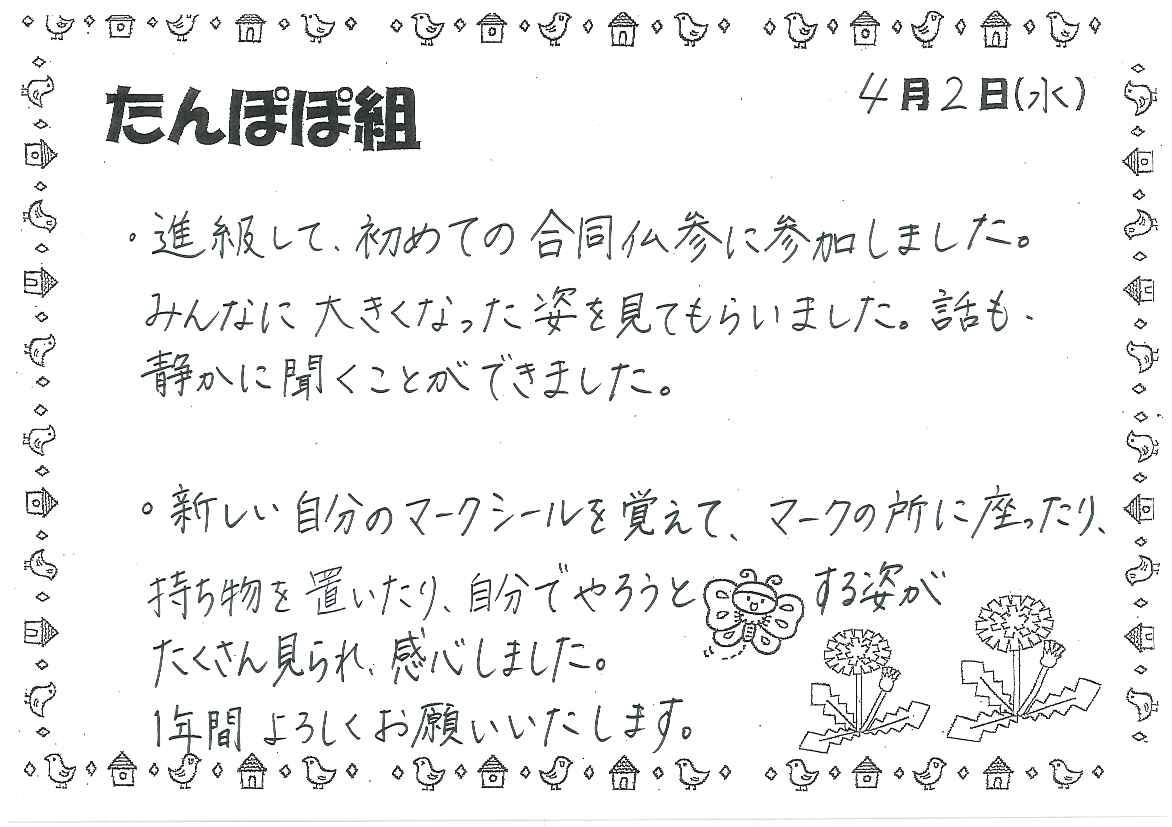 たんぽぽ組
4月2日(水)
・進級して、初めての合同仏参に参加しました。
みんなに大きくなった姿を見てもらいました。話も、
静かに聞くことができました。
・新しい自分のマークシールを覚えて、マークの所に座ったり、
持ち物を置いたり、自分でやろうとする姿が
たくさん見られ、感心しました。
1年間よろしくお願いいたします。